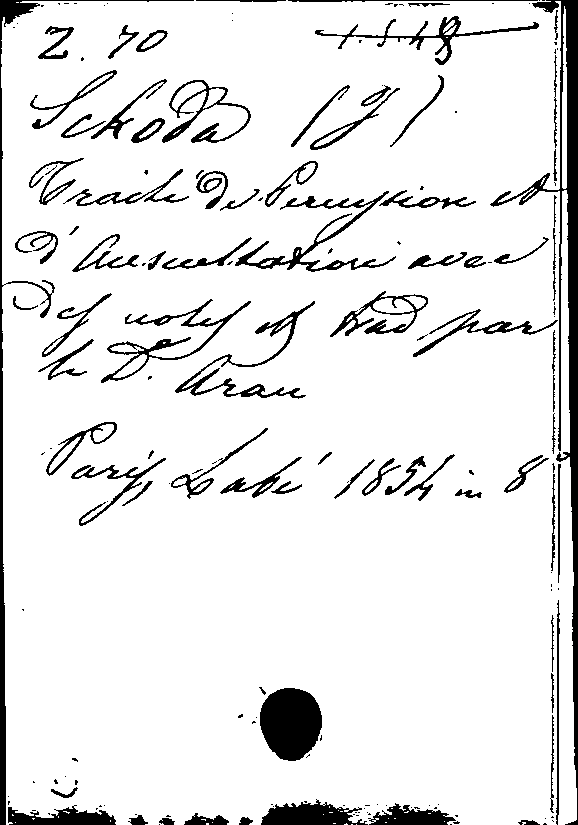 Z. 70 1.5.48
Sckoda (J)
Traité de Percussion et
d'Auscultation avec
des notes et trad par
le Dr. Aran
Paris, Labé 1854 in 8°